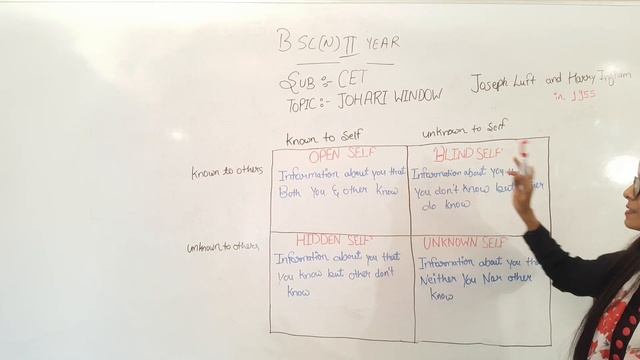 BSC(N) II YEAR
SUB :- CET
TOPIC :- JOHARI WINDOW
Joseph Luft and Harry Ingram
in 1955
known to Self
unknown to Self
known to others
OPEN SELF
Information about you that
Both You & other Know
BLIND SELF
Information about you
you don't know but
do know
unknown to others
HIDDEN SELF
Information about you that
you know but other don't
know
UNKNOWN SELF
Information about you
Neither You Nor other
know